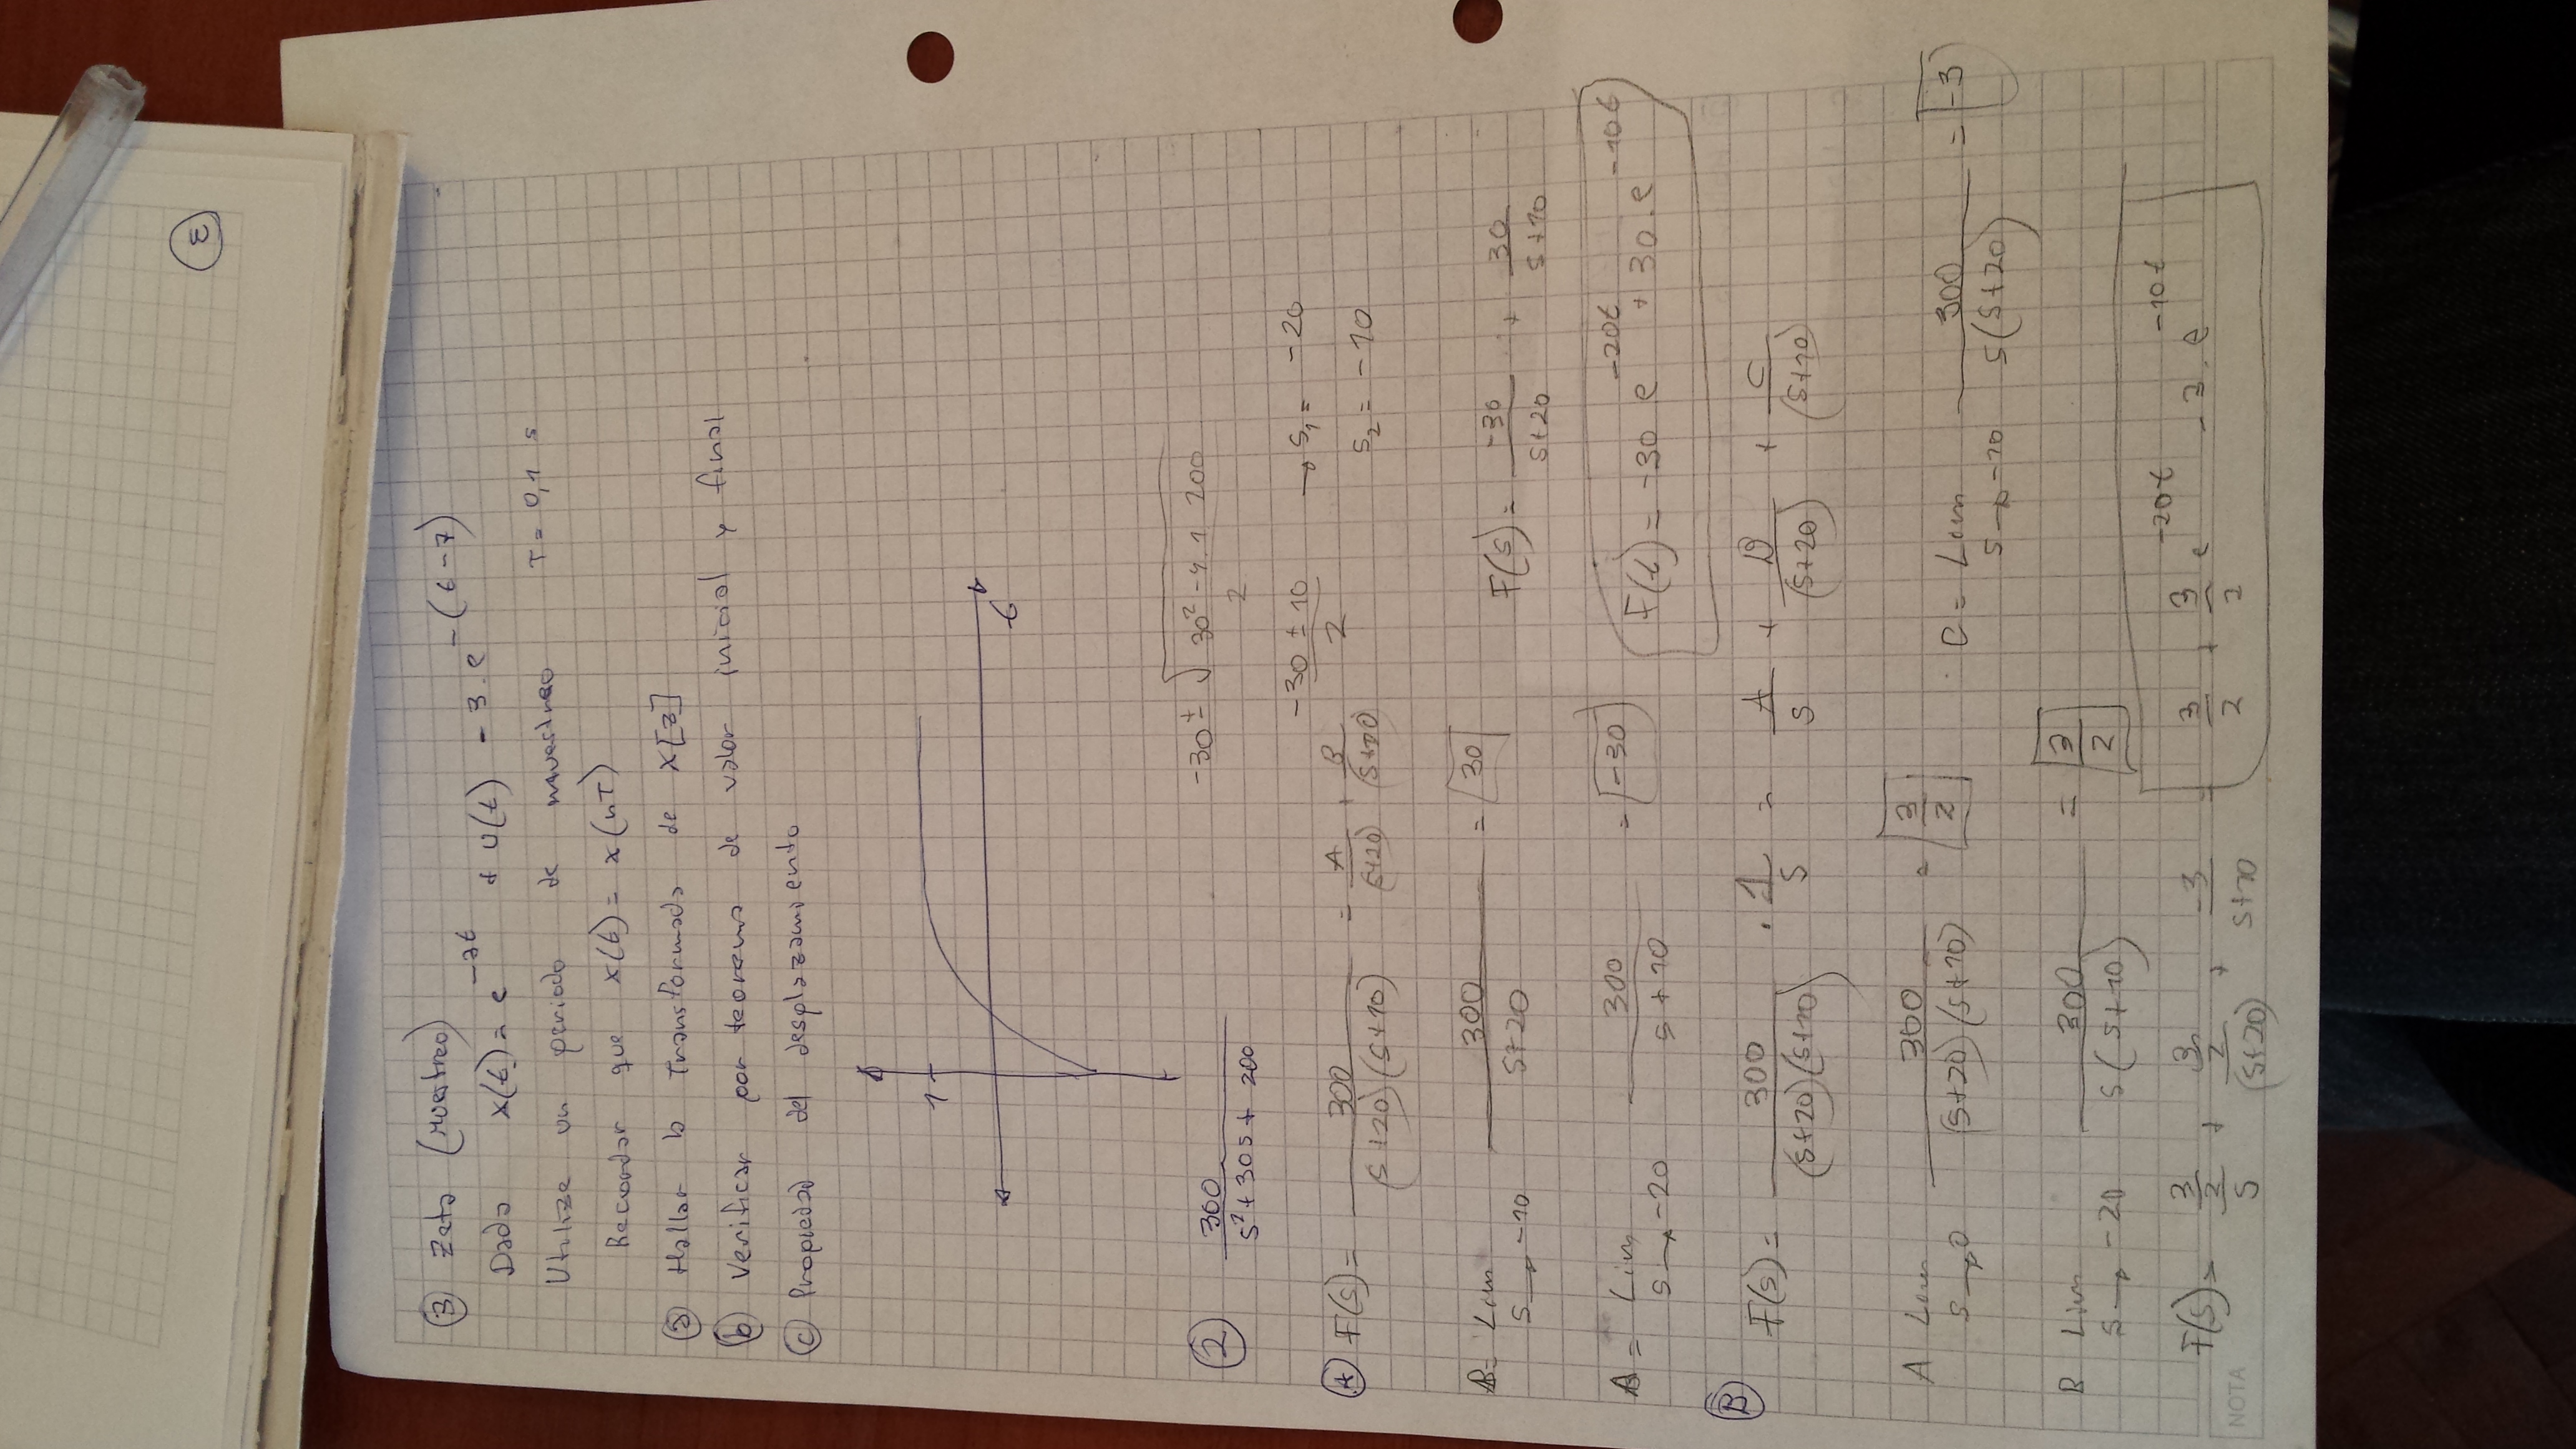 3
③ Zeta (Muestreo)
Dada x(t) = e^{-2t} + U(t) - 3.e^{-(t-7)}
Utilize un periodo de muestreo T = 0,1 s
Recordar que x(t) = x(nT)
ⓐ Hallar la Transformada de X[z]
ⓑ Verificar por teorema de valor inicial y final
ⓒ Propiedad del desplazamiento
1
t
② 300 / (s²+30s+ 200)
(-30 ± √(30² -4.1 200)) / 2
(-30 ± 10) / 2 → s₁ = -20
s₂ = -10
Ⓐ F(s) = 300 / ((s+20)(s+10)) = A/(s+20) + B/(s+10)
B = Lim s→-10 300 / (s+20) = 30
F(s) = -30/(s+20) + 30/(s+10)
A = Lim s→-20 300 / (s+10) = -30
F(t) = -30 e^{-20t} + 30.e^{-10t}
Ⓑ
F(s) = 300 / ((s+20)(s+10)) . 1/s = A/s + B/(s+20) + C/(s+10)
A Lim s→0 300 / ((s+20)(s+10)) = 3/2
C = Lim s→-10 300 / (s(s+20)) = -3
B Lim s→-20 300 / (s(s+10)) = 3/2
F(s) = (3/2)/s + (3/2)/(s+20) + -3/(s+10) = 3/2 + 3/2 e^{-20t} - 3.e^{-10t}
NOTA